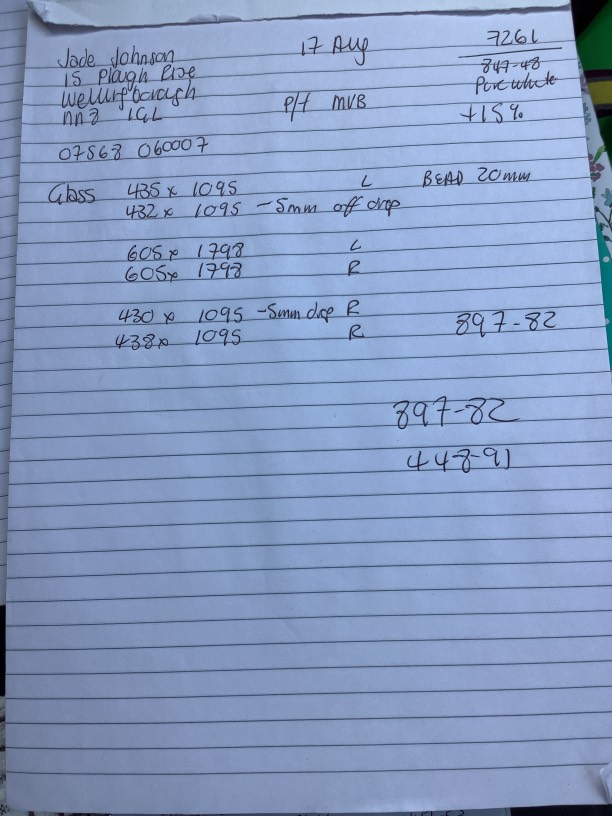 Jade Johnson
17 Aug
7261
15 Plough Rise
847-48
Wellingborough
P/t MVB
Pure white
NN8 1GL
+15%
07568 060007
Glass 435 x 1095 L BEAD 20mm
432 x 1095 -5mm off drop
605 x 1798 L
605 x 1798 R
430 x 1095 -5mm drop R
438 x 1095 R 897-82
897-82
448-91